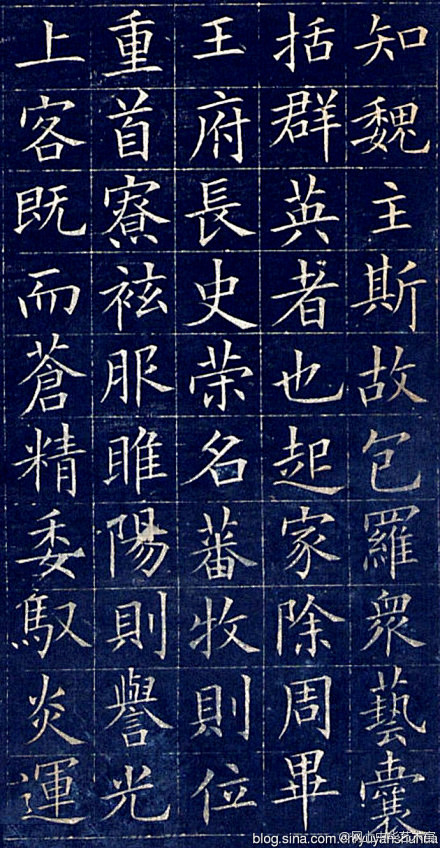 知魏主斯故包羅眾藝囊
括群英者也起家除周畢
王府長史荣名蕃牧則位
重首寮袨服睢陽則譽光
上客既而蒼精委馭炎運
blog.sina.com.cn/yuyanshuhua